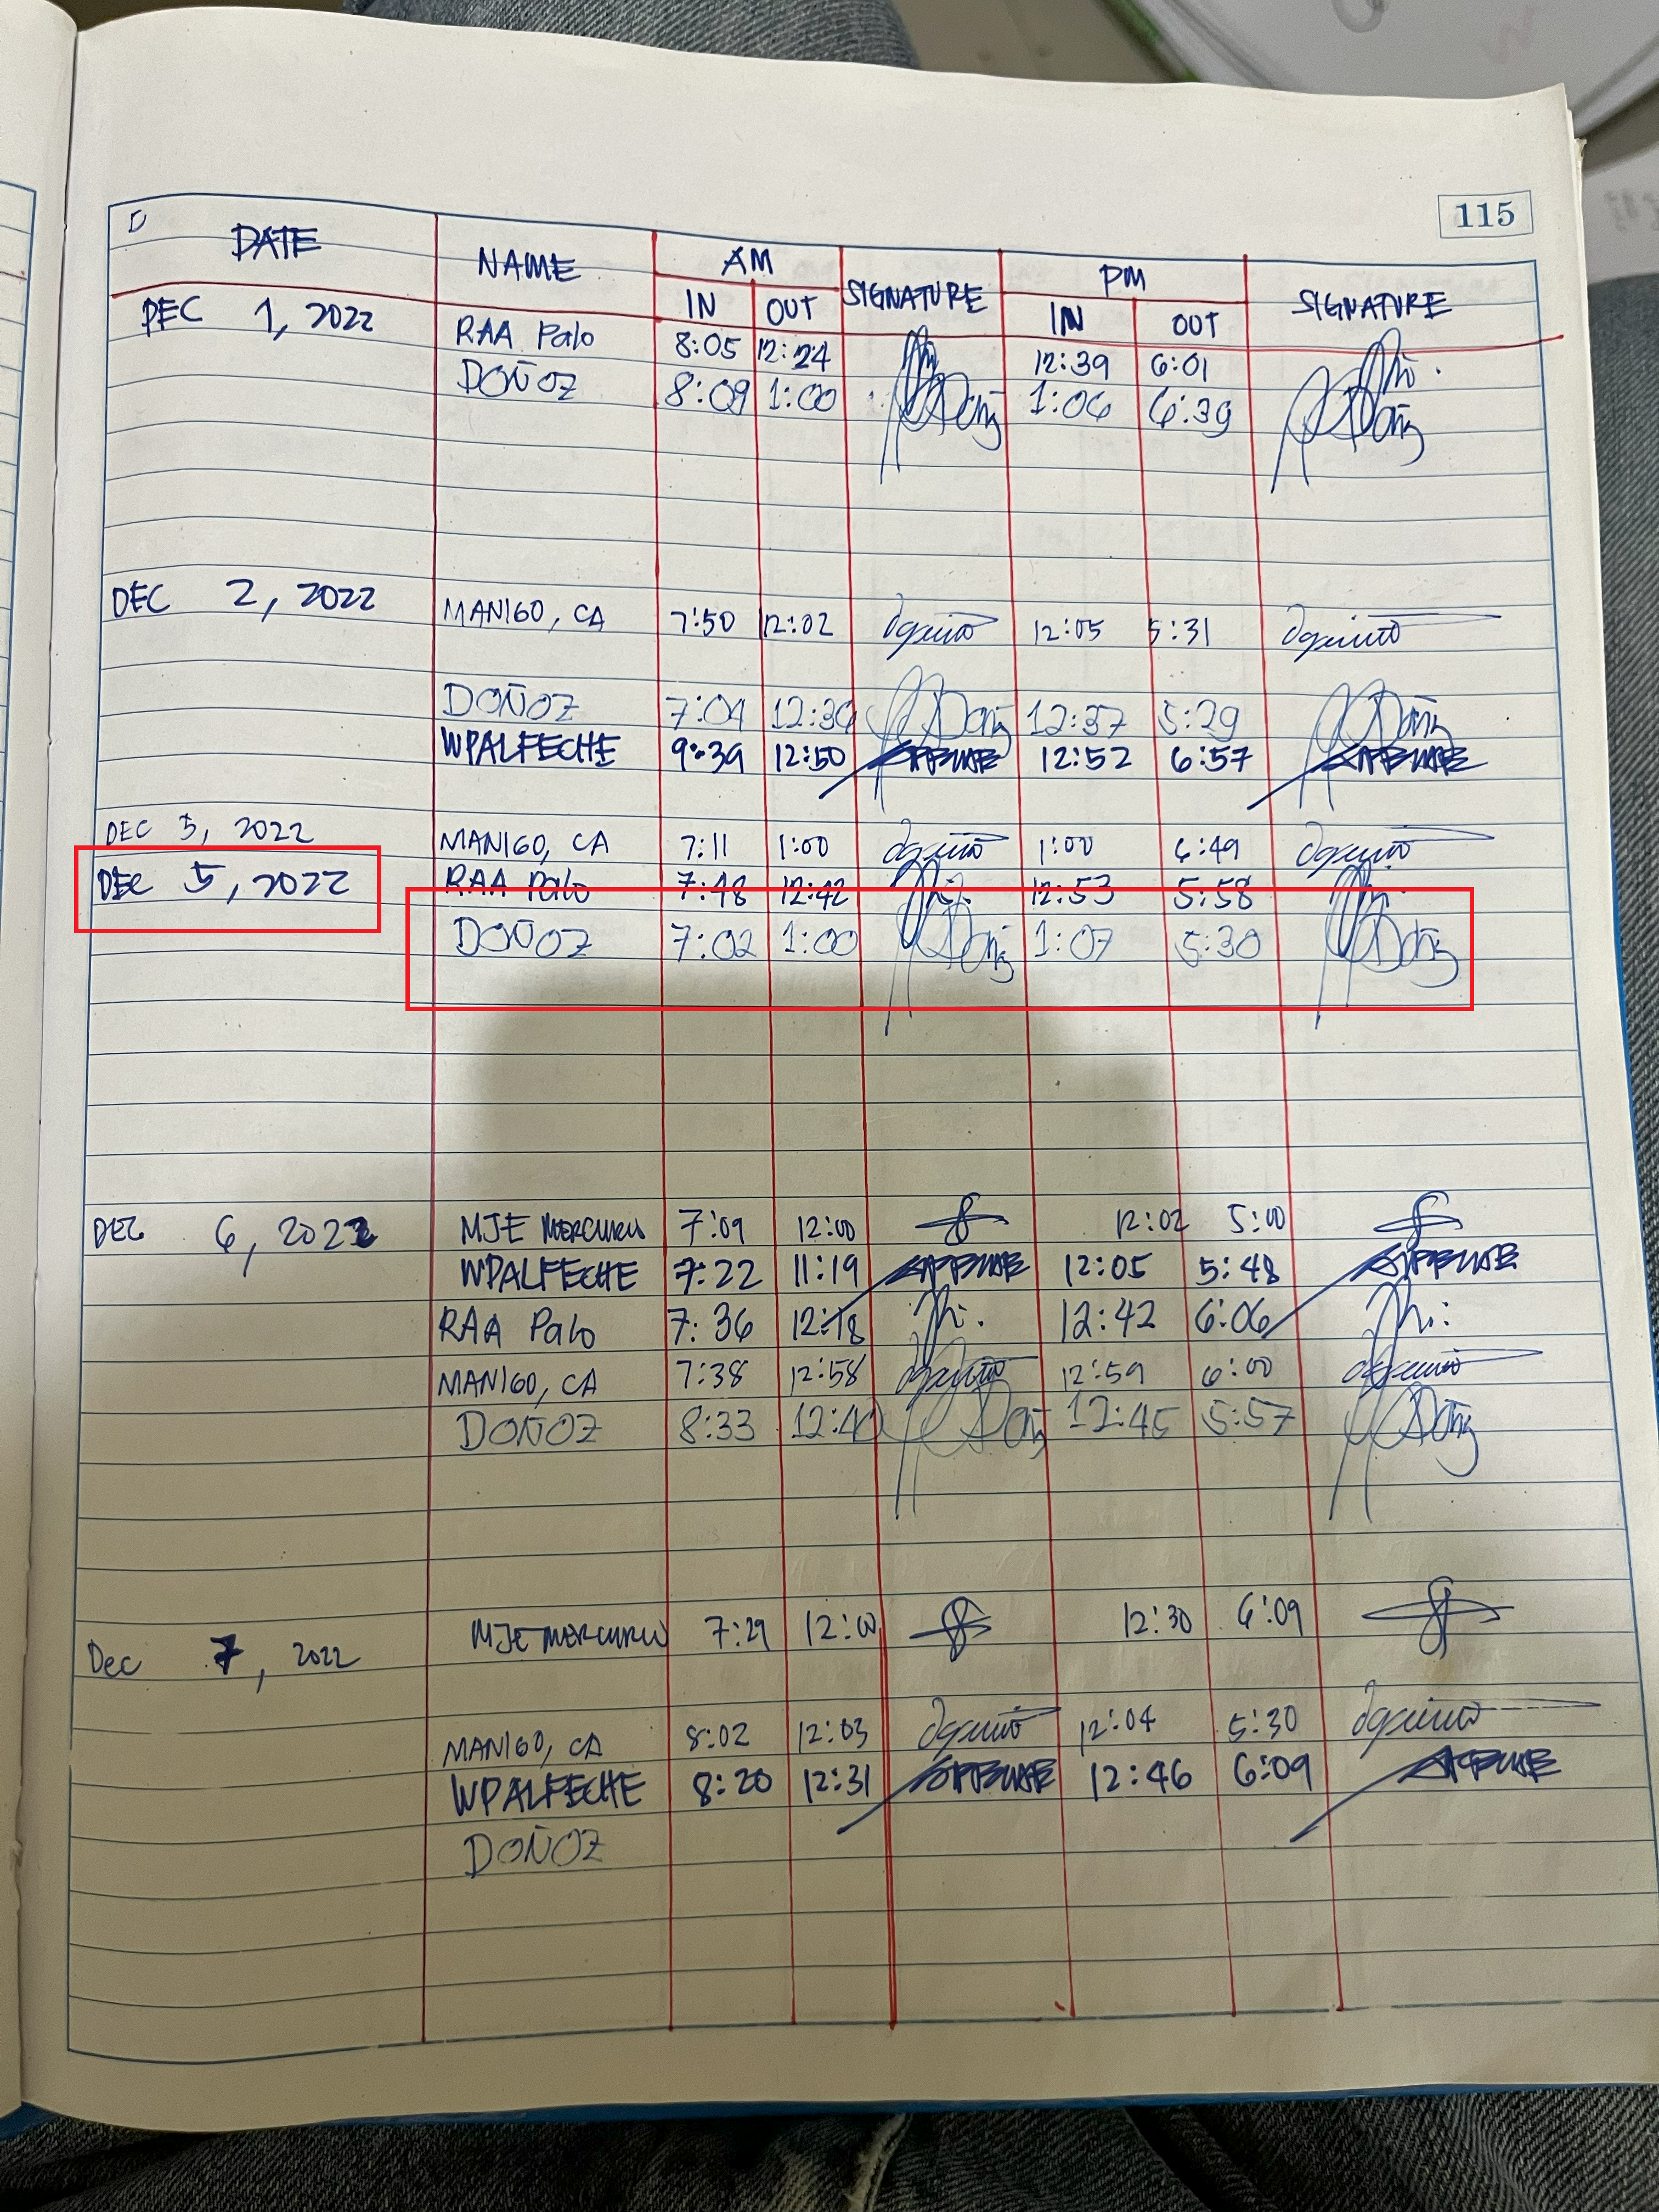 115
DATE NAME AM SIGNATURE PM SIGNATURE
IN OUT IN OUT
DEC 1, 2022 RAA Palo 8:05 12:24 12:39 6:01
DOÑOZ 8:09 1:00 1:06 6:39
DEC 2, 2022 MANIGO, CA 7:50 12:02 12:05 5:31
DOÑOZ 7:04 12:36 12:37 5:29
WPALFECHE 9:39 12:50 12:52 6:57
DEC 5, 2022 MANIGO, CA 7:11 1:00 1:00 6:49
DEC 5, 2022 RAA Palo 7:48 12:42 12:53 5:58
DOÑOZ 7:02 1:00 1:07 5:30
DEC 6, 2022 MJE MERCURIO 7:09 12:00 12:02 5:00
WPALFECHE 7:22 11:19 12:05 5:48
RAA Palo 7:36 12:18 12:42 6:06
MANIGO, CA 7:38 12:58 12:59 6:00
DOÑOZ 8:33 12:40 12:45 5:57
Dec 7, 2022 MJE MERCURIO 7:29 12:00 12:30 6:09
MANIGO, CA 8:02 12:03 12:04 5:30
WPALFECHE 8:20 12:31 12:46 6:09
DOÑOZ